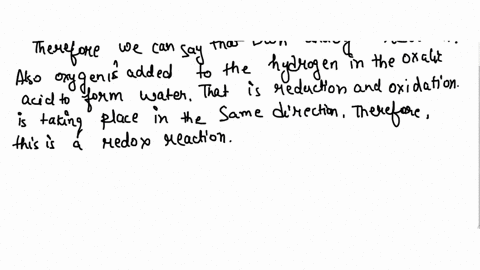 Therefore we can say that
Also oxygen is added to the hydrogen in the oxalic
acid to form water. That is reduction and oxidation
is taking place in the same direction. Therefore,
this is a redox reaction.